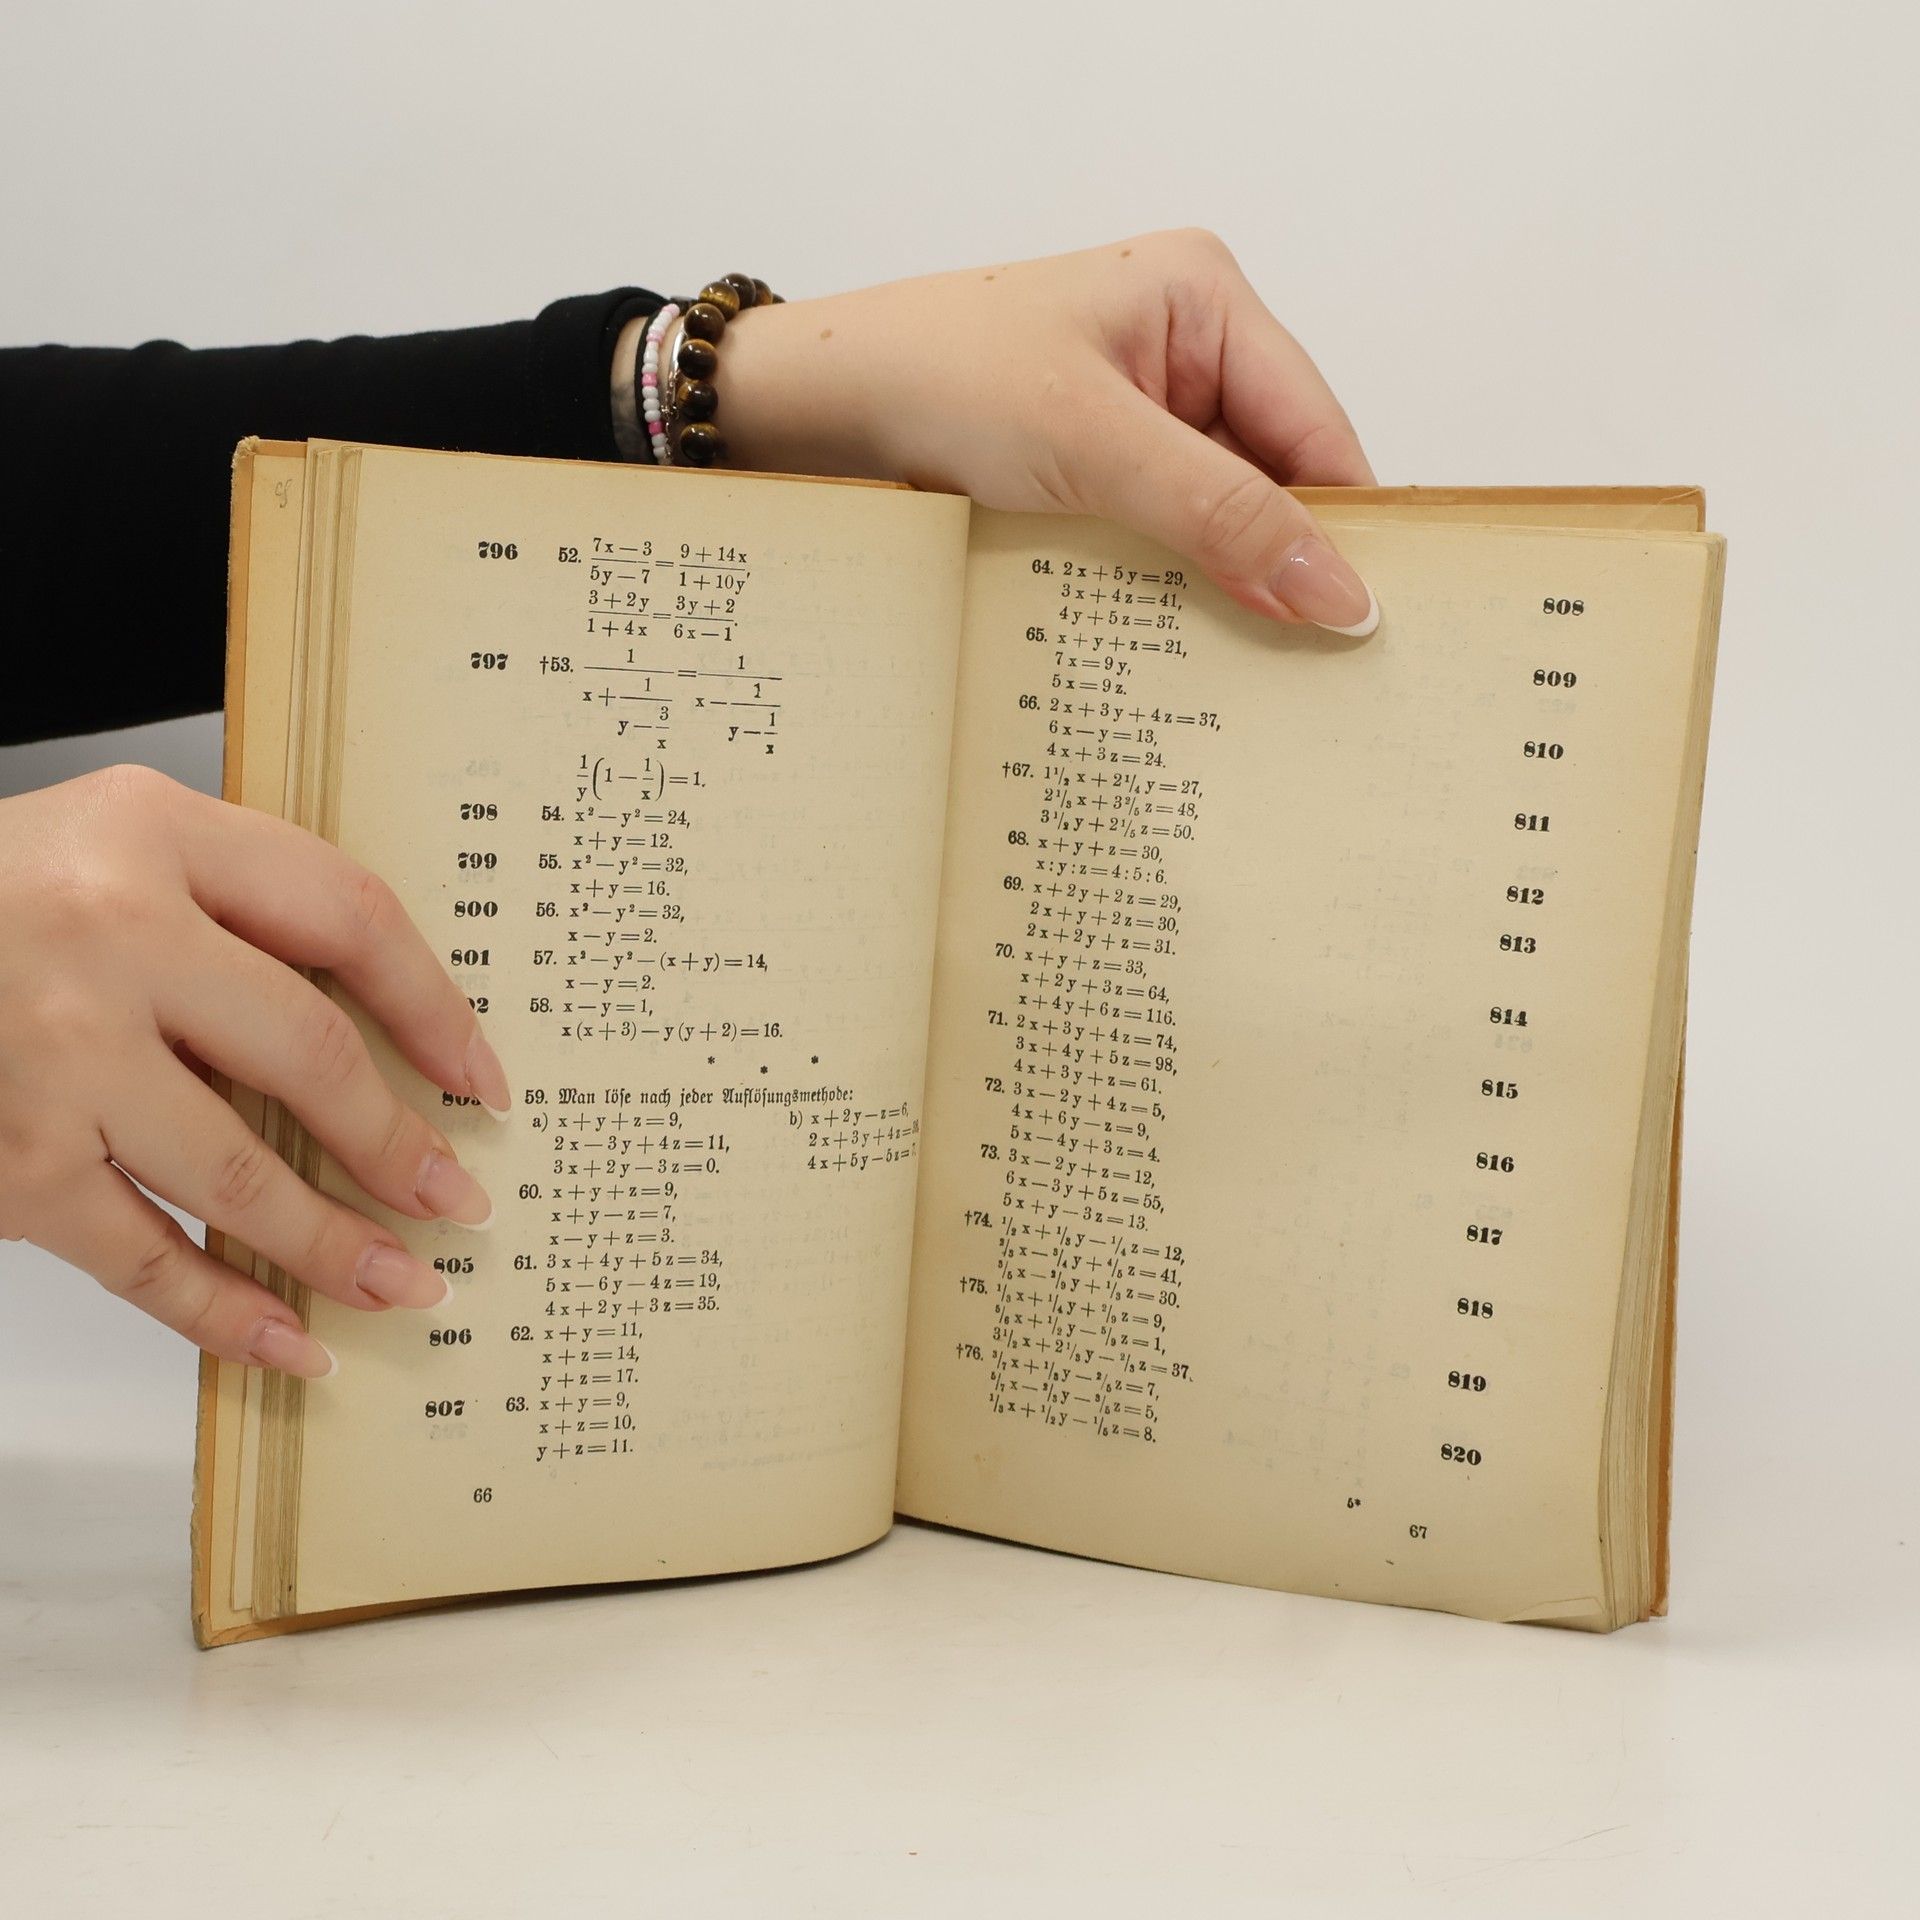 796 52. (7x − 3)/(5y − 7) = (9 + 14x)/(1 + 10y),
(3 + 2y)/(1 + 4x) = (3y + 2)/(6x − 1).
797 †53. 1/(x + 1/(y − 3/x)) = 1/(x − 1/(y − 1/x))
1/y (1 − 1/x) = 1.
798 54. x² − y² = 24,
x + y = 12.
799 55. x² − y² = 32,
x + y = 16.
800 56. x² − y² = 32,
x − y = 2.
801 57. x² − y² − (x + y) = 14,
x − y = 2.
58. x − y = 1,
x (x + 3) − y (y + 2) = 16.
* * *
803 59. Man löse nach jeder Auflösungsmethode:
a) x + y + z = 9, b) x + 2y − z = 6,
2x − 3y + 4z = 11, 2x + 3y + 4z =
3x + 2y − 3z = 0. 4x + 5y − 5z =
60. x + y + z = 9,
x + y − z = 7,
x − y + z = 3.
805 61. 3x + 4y + 5z = 34,
5x − 6y − 4z = 19,
4x + 2y + 3z = 35.
806 62. x + y = 11,
x + z = 14,
y + z = 17.
807 63. x + y = 9,
x + z = 10,
y + z = 11.
66
64. 2x + 5y = 29, 808
3x + 4z = 41,
4y + 5z = 37.
65. x + y + z = 21, 809
7x = 9y,
5x = 9z.
66. 2x + 3y + 4z = 37, 810
6x − y = 13,
4x + 3z = 24.
†67. 1 1/2 x + 2 1/4 y = 27, 811
2 1/3 x + 3 2/5 z = 48,
3 1/2 y + 2 1/5 z = 50.
68. x + y + z = 30, 812
x : y : z = 4 : 5 : 6.
69. x + 2y + 2z = 29, 813
2x + y + 2z = 30,
2x + 2y + z = 31.
70. x + y + z = 33, 814
x + 2y + 3z = 64,
x + 4y + 6z = 116.
71. 2x + 3y + 4z = 74, 815
3x + 4y + 5z = 98,
4x + 3y + z = 61.
72. 3x − 2y + 4z = 5, 816
4x + 6y − z = 9,
5x − 4y + 3z = 4.
73. 3x − 2y + z = 12, 817
6x − 3y + 5z = 55,
5x + y − 3z = 13.
†74. 1/2 x + 1/3 y − 1/4 z = 12, 818
2/3 x − 3/4 y + 4/5 z = 41,
3/5 x − 2/9 y + 1/3 z = 30.
†75. 1/3 x + 1/4 y + 2/9 z = 9, 819
5/6 x + 1/2 y − 5/9 z = 1,
3 1/2 x + 2 1/3 y − 2/3 z = 37.
†76. 3/7 x + 1/3 y − 2/5 z = 7, 820
5/7 x − 2/3 y − 3/5 z = 5,
1/3 x + 1/2 y − 1/5 z = 8.
5*
67